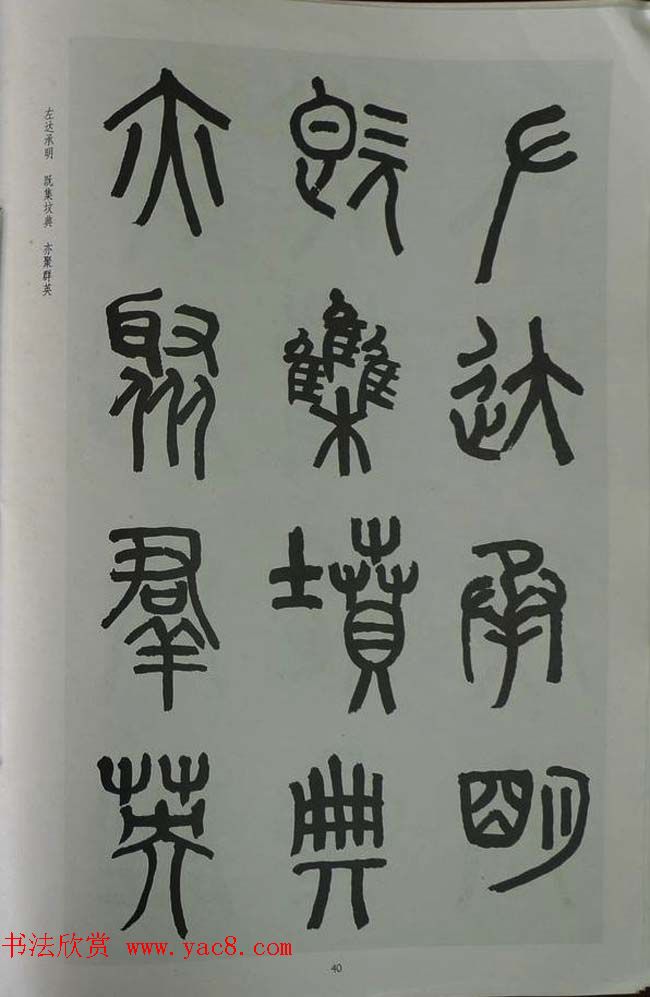 左达承明
既集墳典
亦聚羣英
左达承明 既集坟典 亦聚群英
书法欣赏 www.yac8.com
40